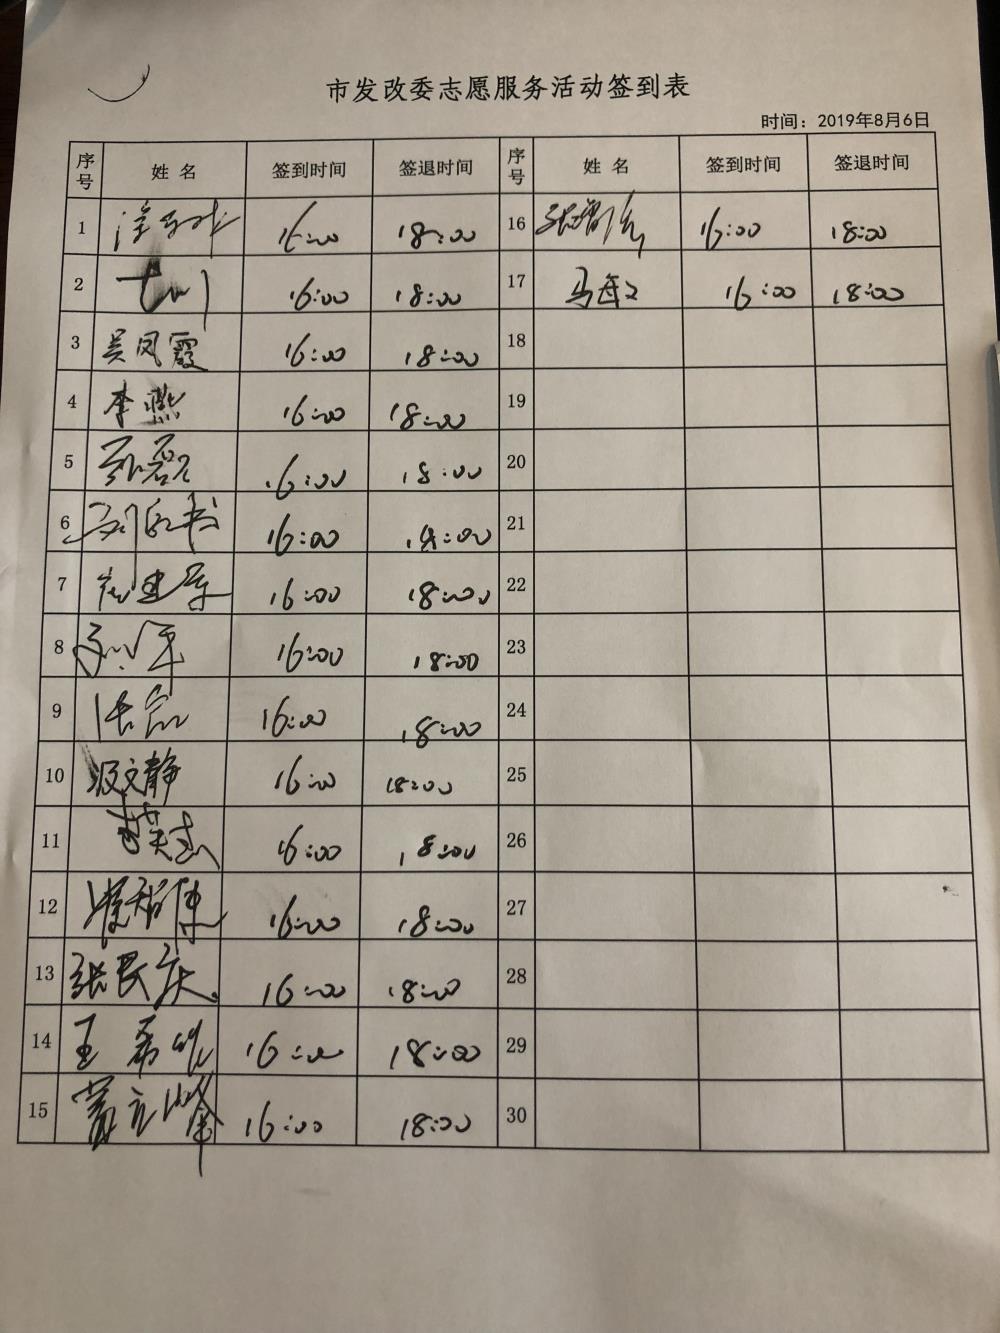 市发改委志愿服务活动签到表
时间：2019年8月6日
序号 姓名 签到时间 签退时间 序号 姓名 签到时间 签退时间
1 16:00 18:00 16 16:00 18:00
2 16:00 18:00 17 马 16:00 18:00
3 吴凤霞 16:00 18:00 18
4 李燕 16:00 18:00 19
5 磊 16:00 18:00 20
6 刘 书 16:00 18:00 21
7 建军 16:00 18:00 22
8 军 16:00 18:00 23
9 16:00 18:00 24
10 文静 16:00 18:00 25
11 16:00 18:00 26
12 16:00 18:00 27
13 张民庆 16:00 18:00 28
14 王希 16:00 18:00 29
15 立峰 16:00 18:00 30